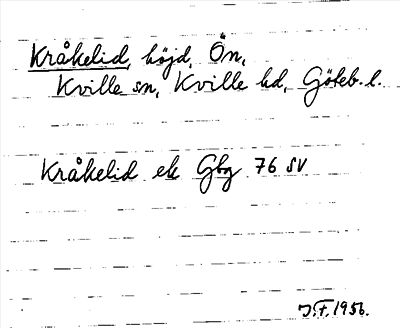 Kråkelid, höjd, Ön,
Kville sn, Kville hd, Göteb. l.
Kråkelid ek Gbg 76 SV
J.F. 1956.